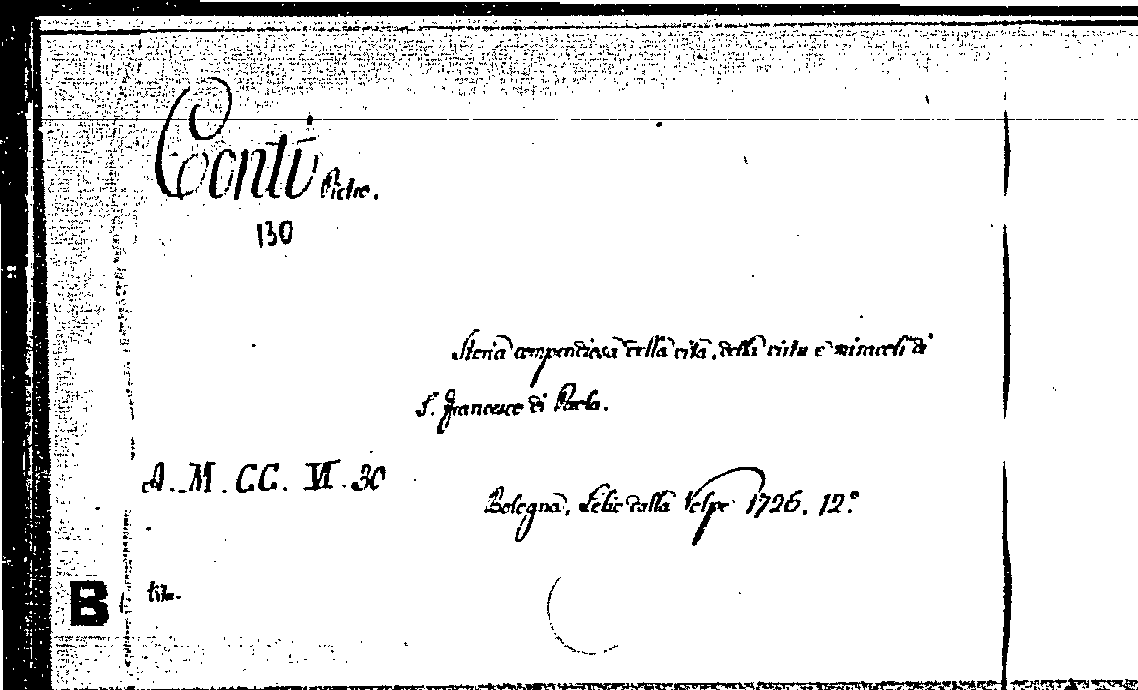 Conti Pietro.
130
Storia compendiosa della vita, della virtù e miracoli di
S. Francesco di Paola.
A. M. CC. VI. 30
Bologna, Lelio dalla Volpe 1726. 12.°
B